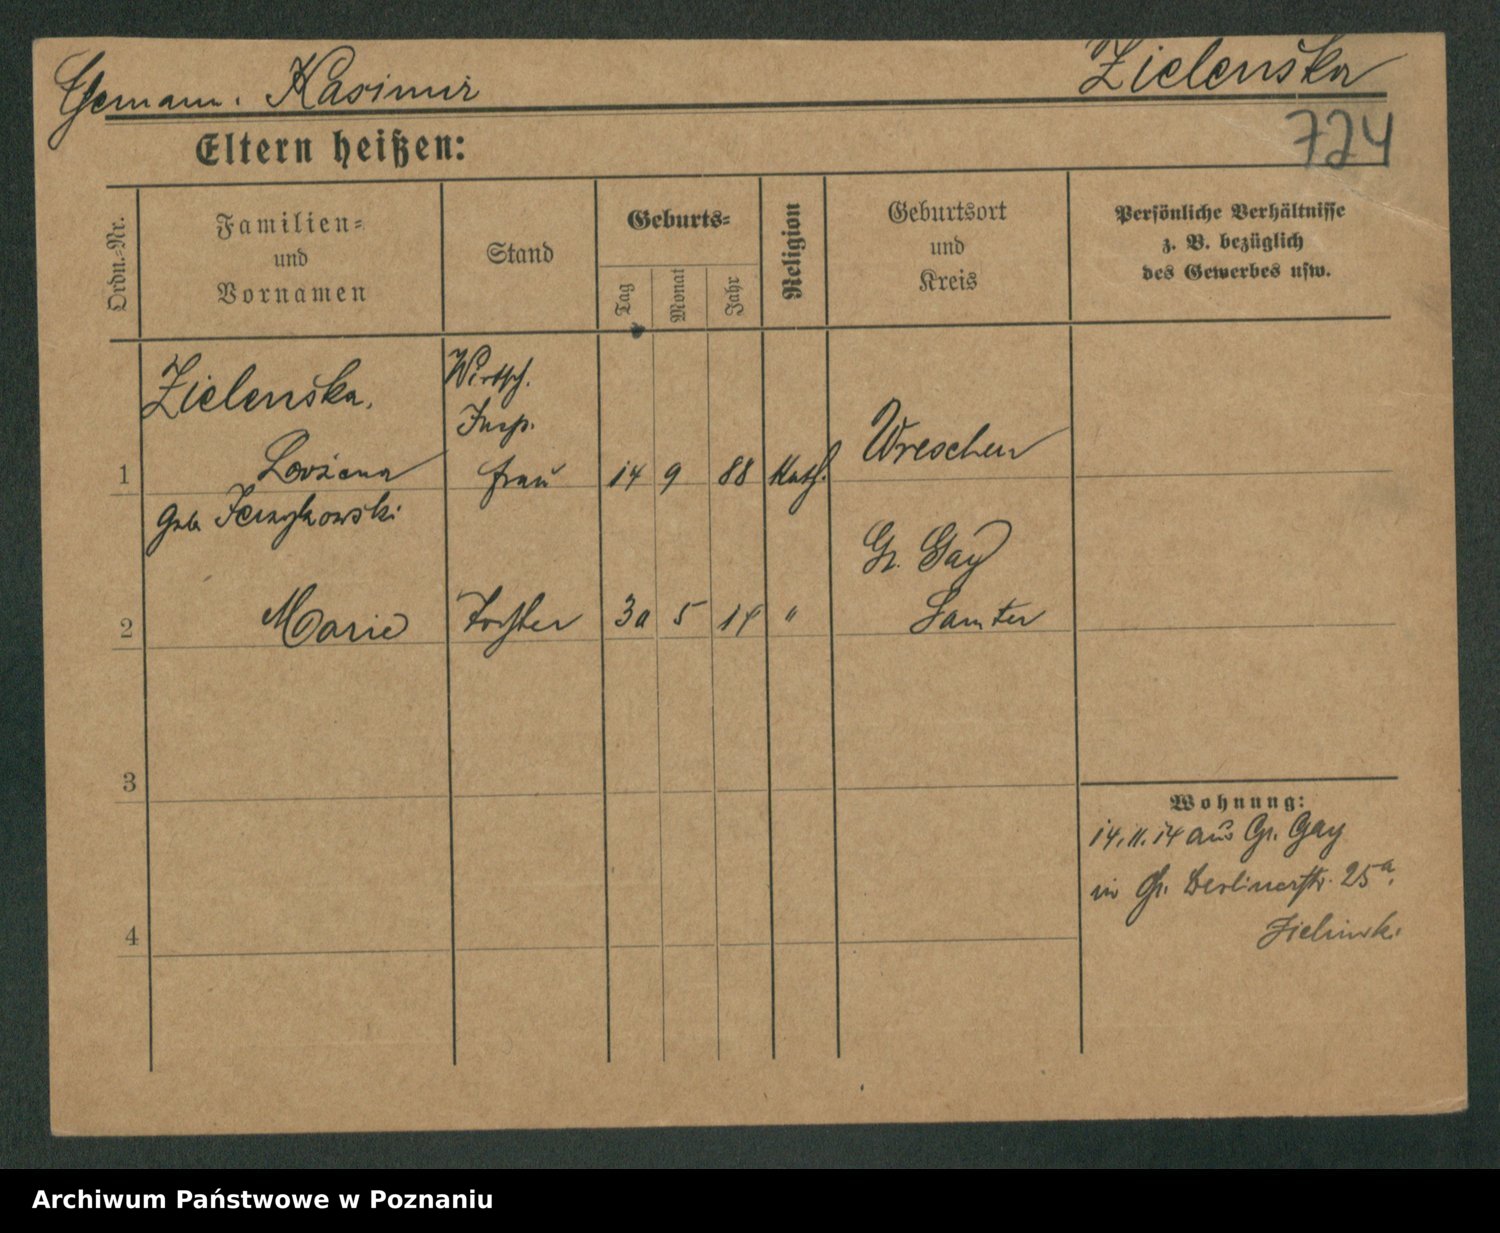 Ehemann. Kasimir Zielenska
724
Eltern heißen:
Ordn.-Nr.
Familien- und Vornamen
Stand
Geburts-
Tag
Monat
Jahr
Religion
Geburtsort und Kreis
Persönliche Verhältnisse
z. B. bezüglich
des Gewerbes usw.
Zielenska, Wirtsch.
Insp.
1 frau 14 9 88 Kath. Wreschen
geb.
Gr. Gay
2 Marie Tochter 30 5 14 " Samter
3
Wohnung:
14.11.14 aus Gr. Gay
in Gr. Berlinerstr. 25a.
Zielinski
4
Archiwum Państwowe w Poznaniu